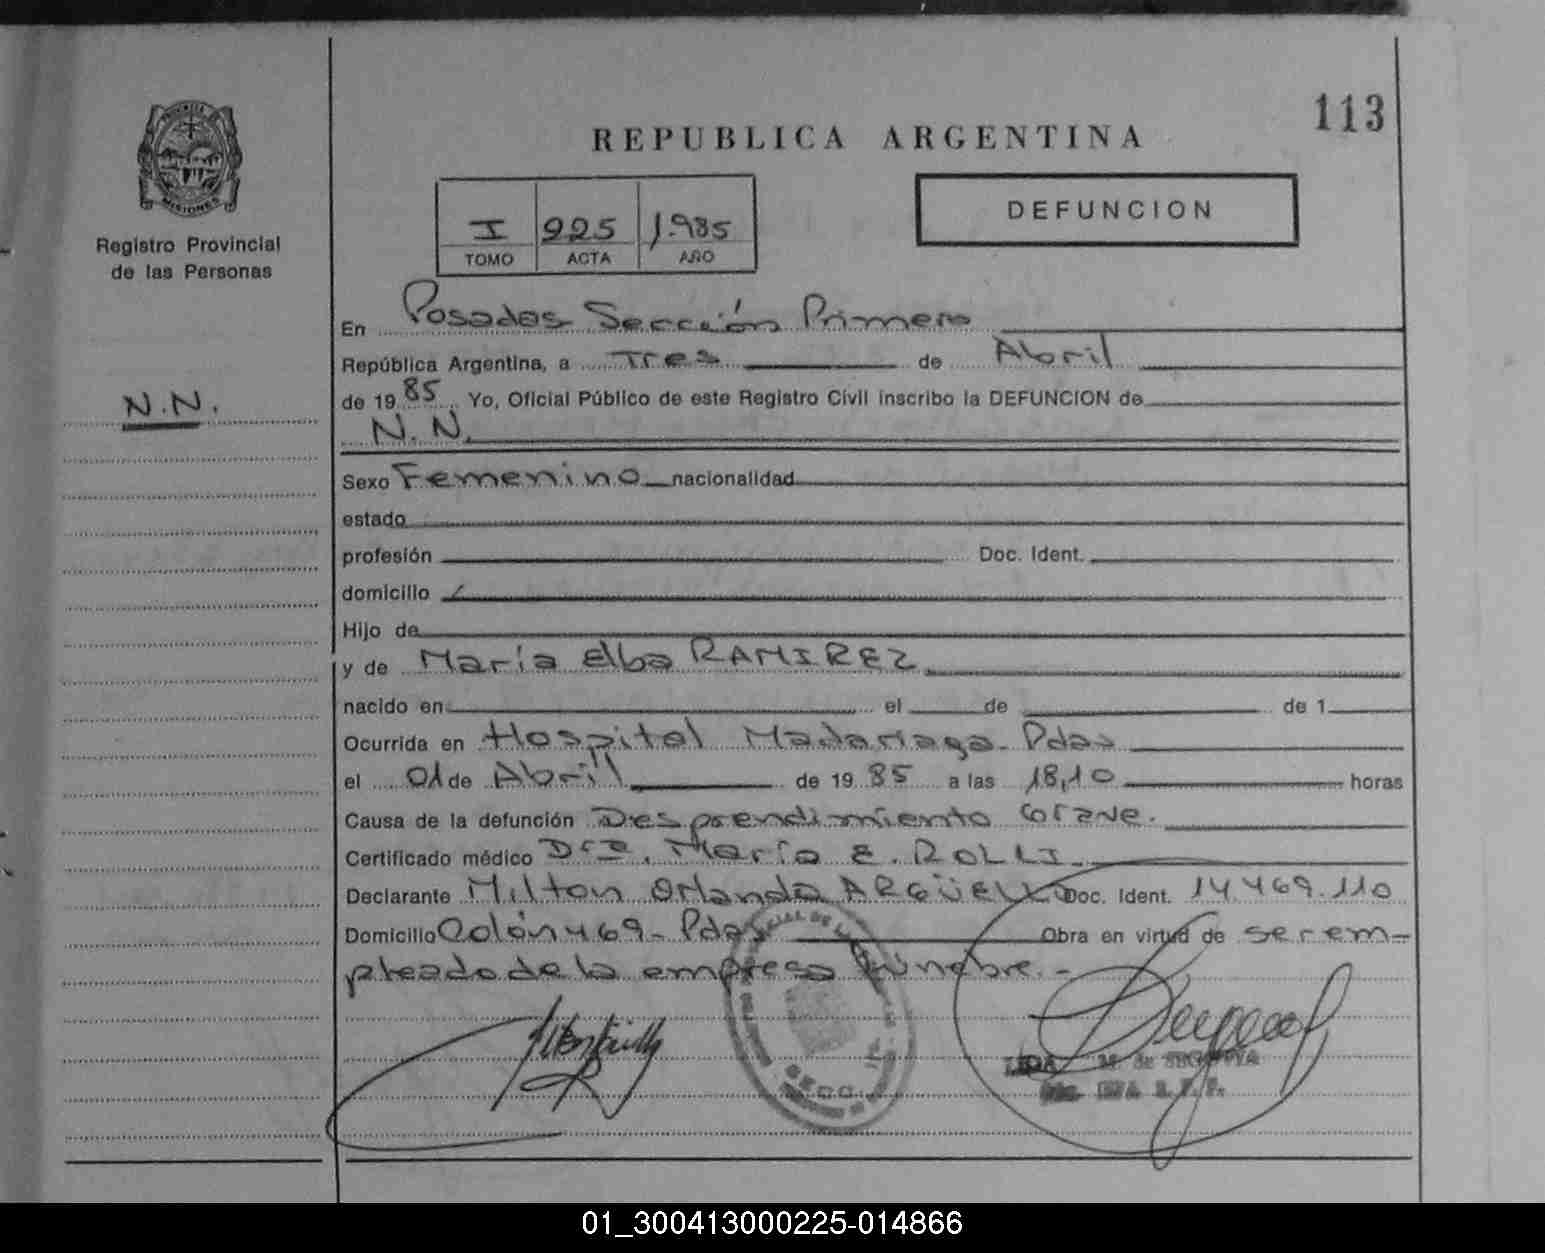 113
REPUBLICA ARGENTINA
PROVINCIA DE
MISIONES
Registro Provincial
de las Personas
I 225 1.985
TOMO ACTA AÑO
DEFUNCION
N.N.
En Posadas Sección Primera
República Argentina, a Tres de Abril
de 1985 Yo, Oficial Público de este Registro Civil inscribo la DEFUNCION de
N.N.
Sexo Femenino nacionalidad
estado
profesión Doc. Ident.
domicilio
Hijo de
y de María Elba RAMIREZ
nacido en el de de 1
Ocurrida en Hospital Madariaga - Pdas
el 01 de Abril de 1985 a las 18,10 horas
Causa de la defunción Desprendimiento Grave.
Certificado médico Dra. María E. ROLLI
Declarante Milton Orlando ARGÜELLO Doc. Ident. 14.469.110
Domicilio Colón 469 - Pdas Obra en virtud de ser em-
pleado de la empresa fúnebre.-
SECC.
M. de SEGOVIA
01_300413000225-014866